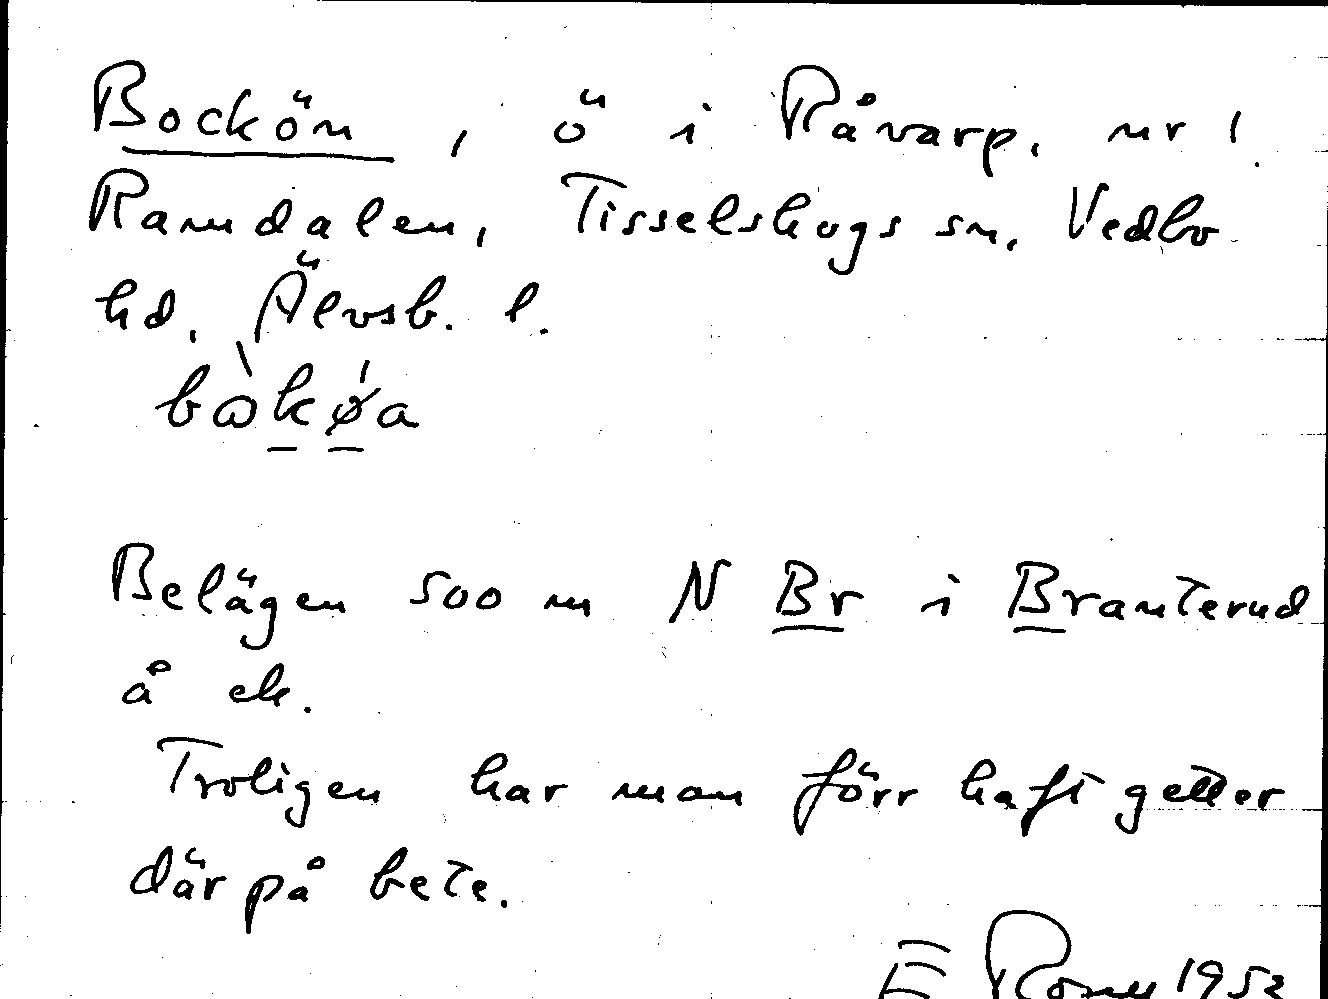 Bockön, ö i Råvarp, nr 1
Ramdalen, Tisselskogs sn, Vedbo
hd, Älvsb. l.
bωkøa
Belägen 500 m N Br i Branterud
å ek.
Troligen har man förr haft getter
där på bete.
E 1952